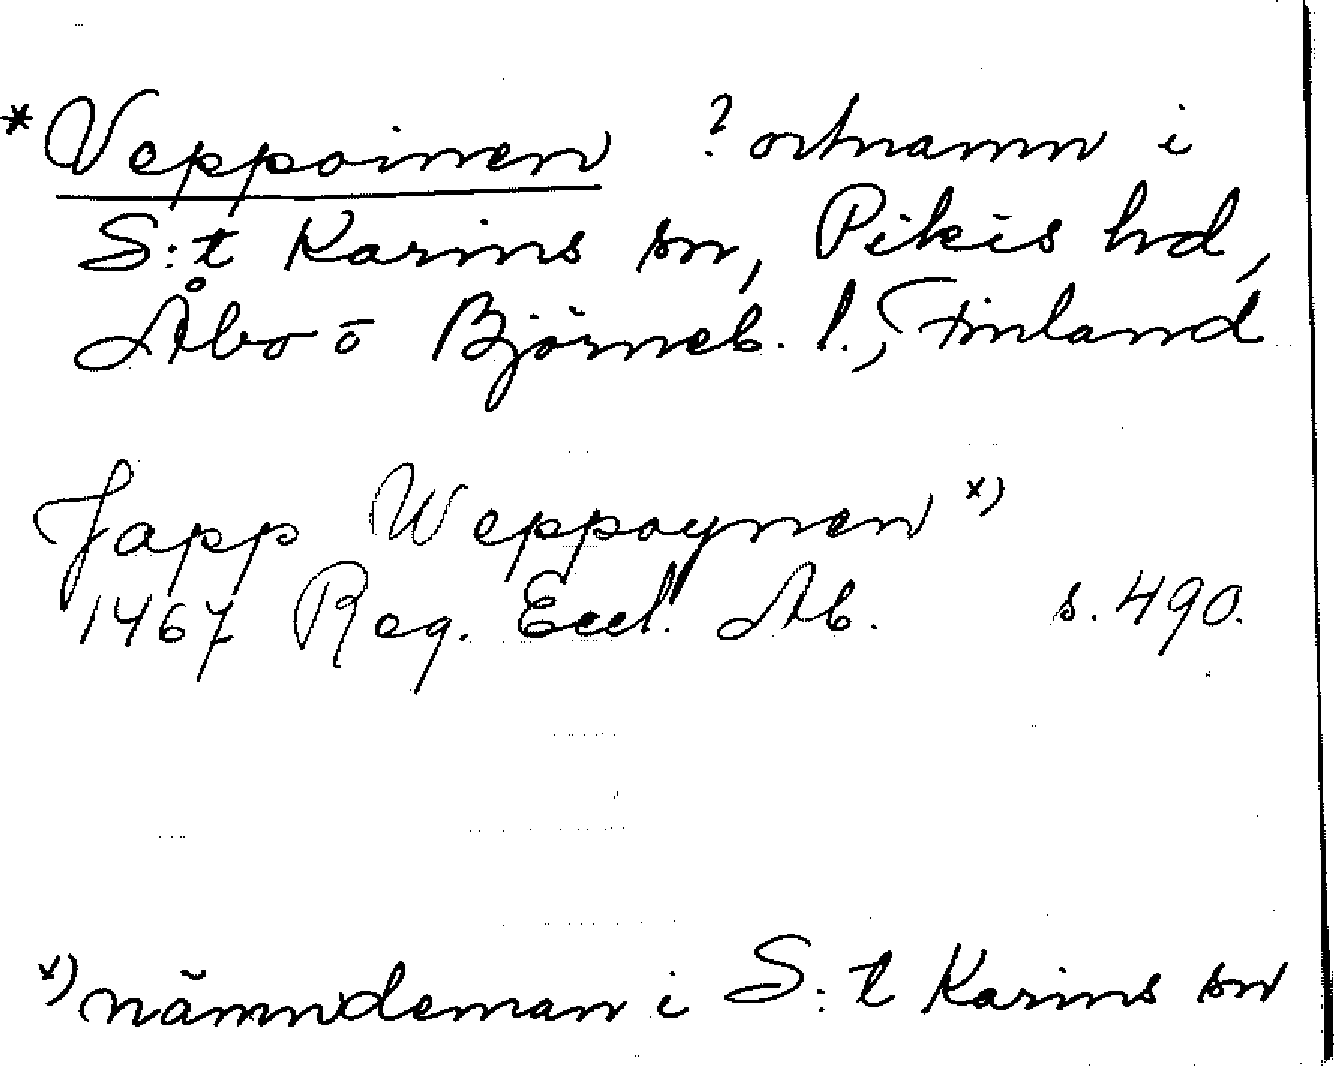 * Veppoinen ? ortnamn i
S:t Karins sn, Pikis hd,
Åbo o Björneb. l., Finland
Japp Weppoynen x)
1467 Reg. Eccl. Ab. s. 490.
x) nämndeman i S:t Karins sn